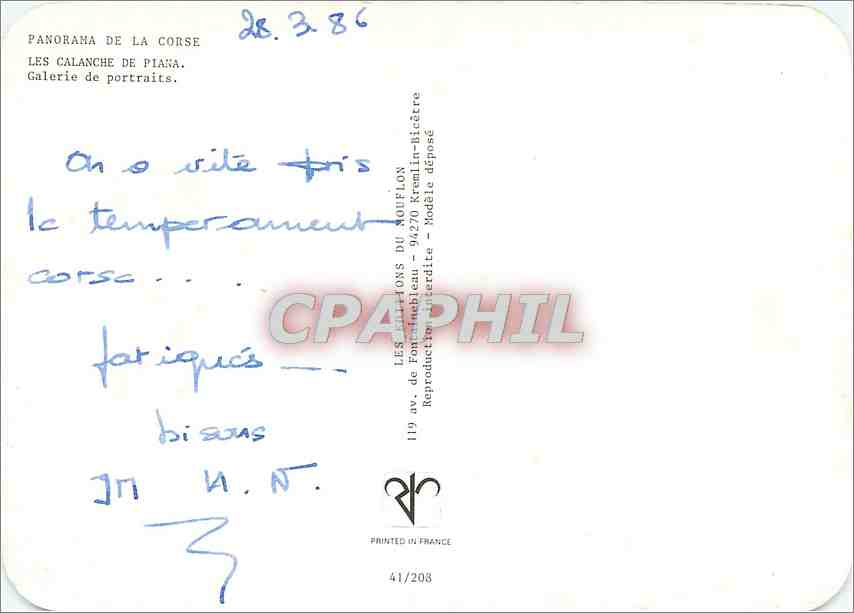 28.3.86
PANORAMA DE LA CORSE
LES CALANCHE DE PIANA.
Galerie de portraits.
On a vite pris
le temperament
corse . . .
fatigués ---
bisous
JM
LES EDITIONS DU MOUFLON
119 av. de Fontainebleau - 94270 Kremlin-Bicêtre
Reproduction interdite - Modèle déposé
CPAPHIL
PRINTED IN FRANCE
41/208